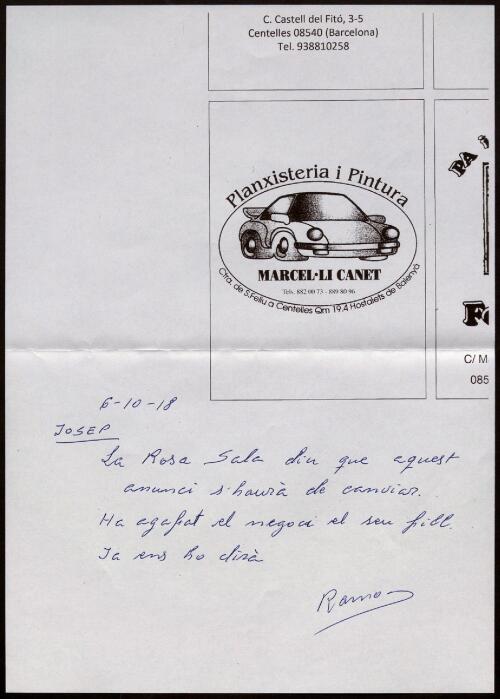 C. Castell del Fitó, 3-5
Centelles 08540 (Barcelona)
Tel. 938810258
Planxisteria i Pintura
MARCEL·LI CANET
Tels. 882 00 73 - 889 80 96
Ctra. de S.Feliu a Centelles Qm 19,4 Hostalets de Balenyà
PA
C/ M
085
6-10-18
JOSEP
La Rosa Sala diu que aquest
anunci s'haurà de canviar.
Ha agafat el negoci el seu fill.
Ja ens ho dirà
Ramon